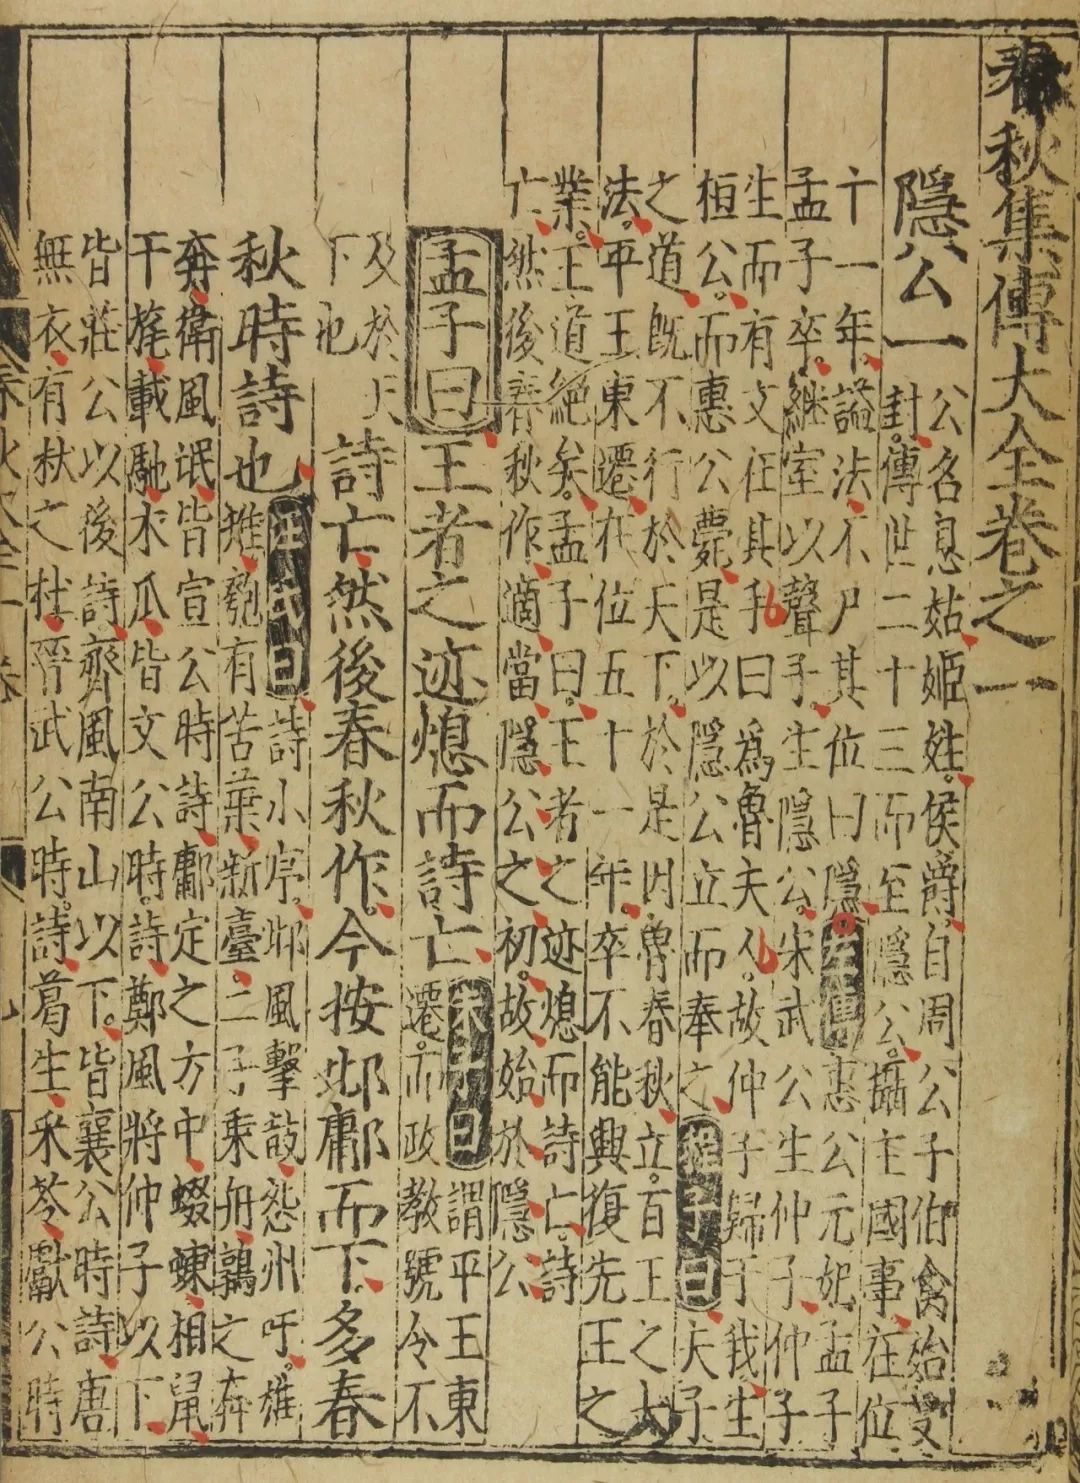 春秋集傳大全卷之一
隱公一
公名息姑姬姓侯爵自周公子伯禽始受
封傳世二十三而至隱公攝主國事在位
十一年謚法不尸其位曰隱左傳惠公元妃孟子
孟子卒繼室以聲子生隱公宋武公生仲子仲子
生而有文在其手曰爲魯夫人故仲子歸于我生
桓公而惠公薨是以隱公立而奉之程子曰夫子
之道既不行於天下於是因魯春秋立百王之大
法平王東遷在位五十一年卒不能興復先王之
業王道絕矣孟子曰王者之迹熄而詩亡詩
亡然後春秋作適當隱公之初故始於隱公
孟子曰王者之迹熄而詩亡
朱子曰謂平王東
遷而政教號令不
及於天
下也
詩亡然後春秋作今按邶鄘而下多春
秋時詩也
汪氏曰詩小序邶風擊鼓怨州吁雄
雉匏有苦葉新臺二子乘舟鶉之奔
奔衛風氓皆宣公時詩鄘定之方中蝃蝀相鼠
干旄載馳木瓜皆文公時詩鄭風將仲子以下
皆莊公以後詩齊風南山以下皆襄公時詩唐
無衣有杕之杜晉武公時詩葛生采苓獻公時